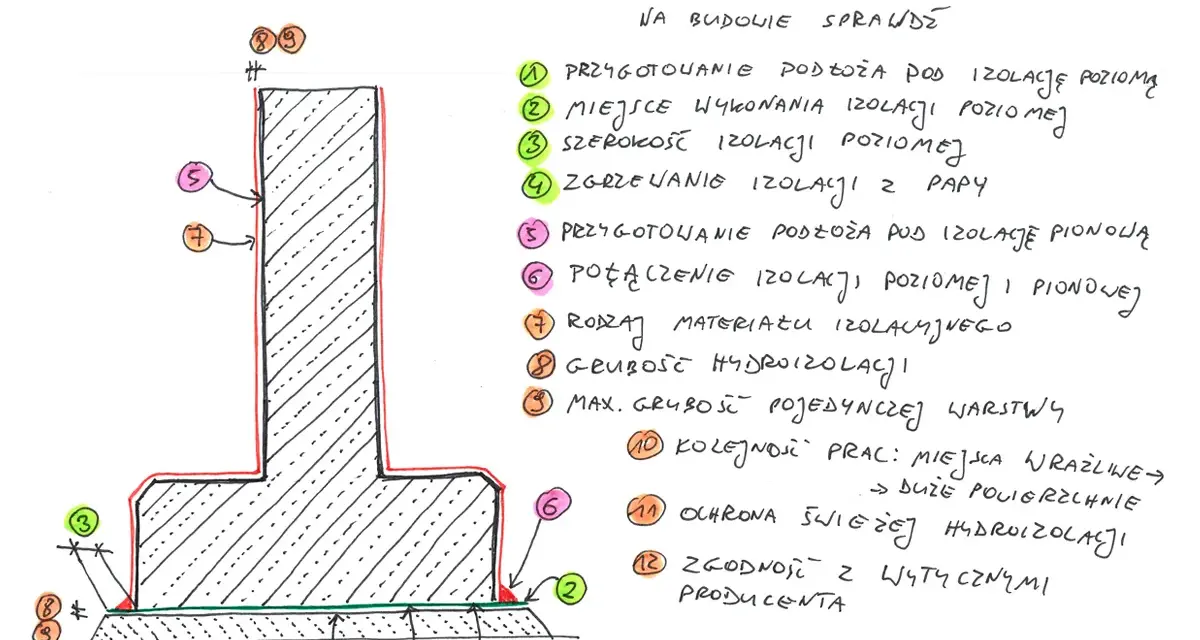 NA BUDOWIE SPRAWDŹ
8 9
1 PRZYGOTOWANIE PODŁOŻA POD IZOLACJĘ POZIOMĄ
2 MIEJSCE WYKONANIA IZOLACJI POZIOMEJ
3 SZEROKOŚĆ IZOLACJI POZIOMEJ
4 ZGRZEWANIE IZOLACJI Z PAPY
5 PRZYGOTOWANIE PODŁOŻA POD IZOLACJĘ PIONOWĄ
6 POŁĄCZENIE IZOLACJI POZIOMEJ I PIONOWEJ
7 RODZAJ MATERIAŁU IZOLACYJNEGO
8 GRUBOŚĆ HYDROIZOLACJI
9 MAX. GRUBOŚĆ POJEDYNCZEJ WARSTWY
10 KOLEJNOŚĆ PRAC: MIEJSCA WRAŻLIWE →
→ DUŻE POWIERZCHNIE
11 OCHRONA ŚWIEŻEJ HYDROIZOLACJI
12 ZGODNOŚĆ Z WYTYCZNYMI
PRODUCENTA
5
7
3
6
2
8
9